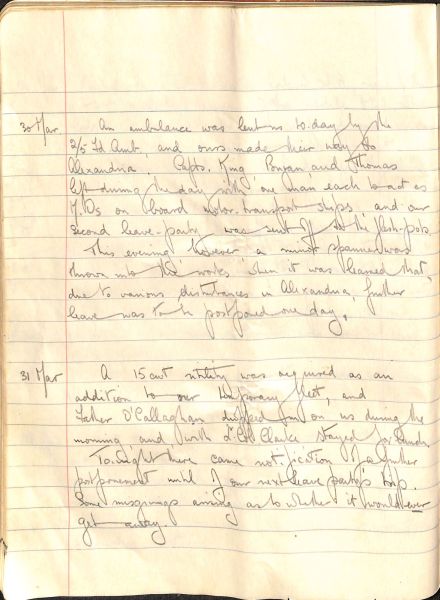 30 Mar. An ambulance was lent us to-day by the
2/5 Fd Amb, and ours made their way to
Alexandria. Capts. King and Thomas
left during the day with one man each to act as
M.Os on board motor-transport ships, and our
second leave-party was sent off to the flesh-pots.
This evening however a minor spanner was
thrown into the works when it was learned that,
due to various disturbances in Alexandria, further
leave was to be postponed one day.
31 Mar A 15cwt utility was acquired as an
addition to our temporary fleet, and
Father O'Callaghan dropped in on us during the
morning and with Clarke stayed for lunch.
Tonight there came notification of a further
postponement until of our next leave party's trip.
Some misgivings arising as to whether it would ever
get away.